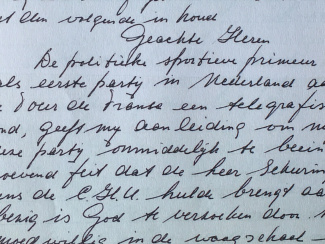 met den volgende in houd
Geachte Heren
De politieke sportieve primeur
als eerste party in Nederland aa
Tour de France een telegrafis
ond, geeft my aanleiding om m
eze party onmiddelyk te beëin
ovend feit dat de heer Scheurin
ens de C.H.U. hulde brengt aa
bezig is God te verzoeken door z
moedwillig in de waagschaal